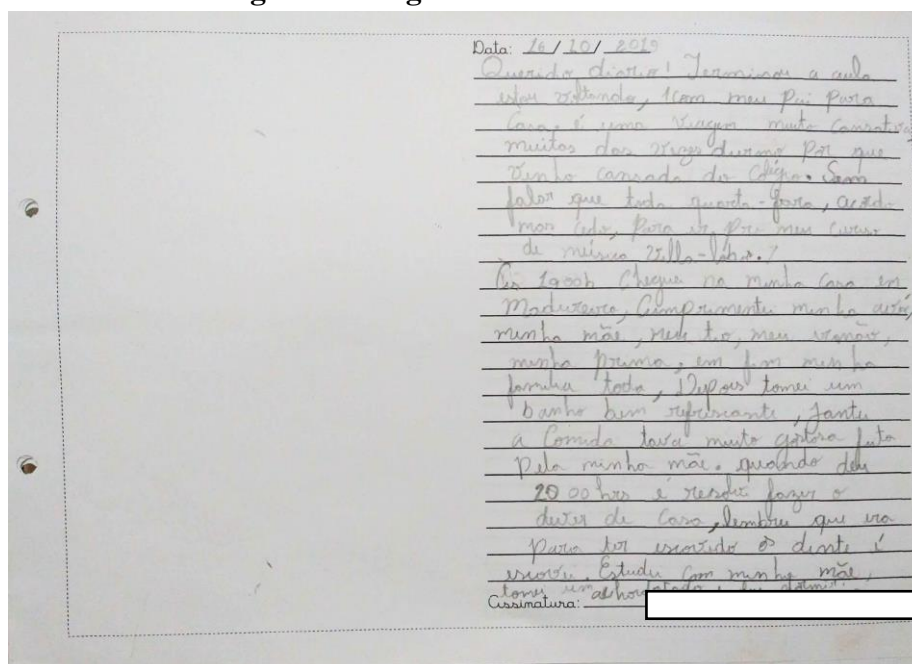 Data: 16/10/2019
Querido diario! Terminou a aula
estou voltando, com meu Pai Para
Casa, é uma viagem muito cansativa,
muitas das vezes durmo Por que
venho cansada do Colégio. Sem
falar que toda quarta-feira, acordo
mas cedo, Para ir Pro meu curso
de música Villa-Lobos.
Às 19:00h Cheguei na minha Casa em
Madureira, Cumprimentei minha avó,
minha mãe, meu tio, meu irmão,
minha Prima, em fim minha
família toda, Depois tomei um
banho bem refrescante, Jantei
a Comida tava muito gostosa feita
Pela minha mãe. quando deu
20 00 hrs e resolvi fazer o
dever de Casa, lembrei que era
Para ter escovido os dente é
escovei. Estudei com minha mãe,
tomei um achocolatado e fui dormir.
Assinatura: